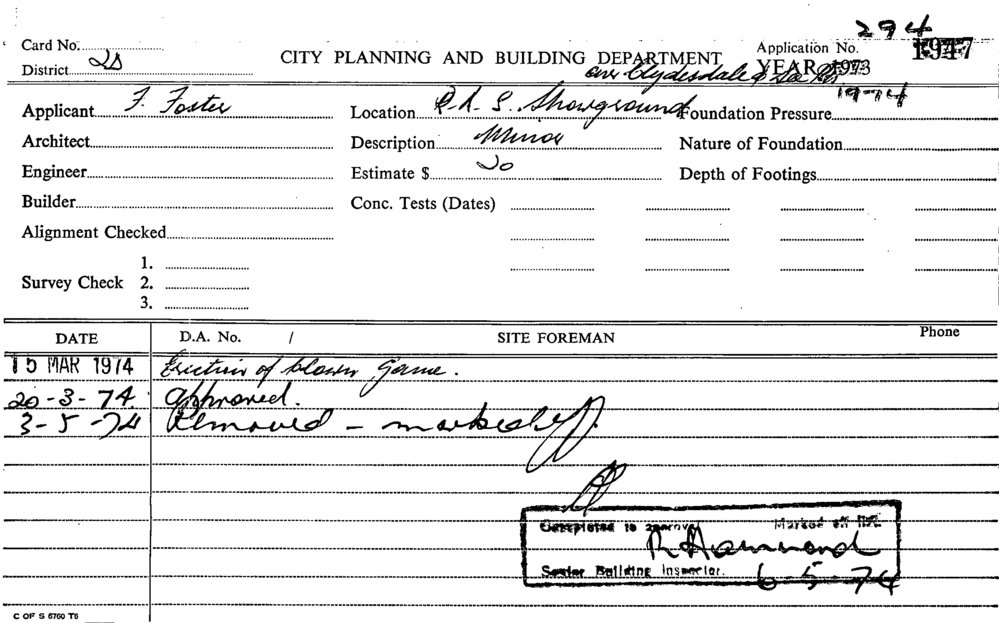 294
Card No. 2D
CITY PLANNING AND BUILDING DEPARTMENT
Application No. 1947
District
cnr Clydesdale &
YEAR 1973
1974
Applicant F. Foster
Location R.A.S. Showground
Foundation Pressure
Architect
Description Minor
Nature of Foundation
Engineer
Estimate $ 20
Depth of Footings
Builder
Conc. Tests (Dates)
Alignment Checked
1.
Survey Check 2.
3.
DATE
D.A. No. /
SITE FOREMAN
Phone
15 MAR 1974 Erection of clown Game.
20-3-74. Approved.
3-5-74 Removed – marked off.
Completed to approval Marked off
R Hammond
Senior Building Inspector. 6-5-74
C OF S 6760 T6